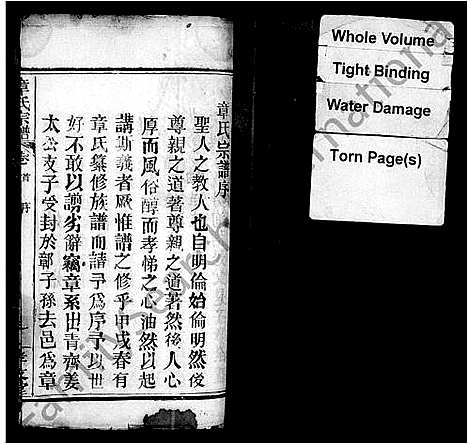 章氏宗譜序
聖人之教人也自明倫始倫明然後
尊親之道著尊親之道著然後人心
厚而風俗醇而孝悌之心油然以起
講斯義者厥惟譜之修乎甲戌春有
章氏纂修族譜而請予爲序予以世
好不敢以謭劣辭竊章系出青齊姜
太公支子受封於鄣子孫去邑爲章
章氏宗譜
Whole Volume
Tight Binding
Water Damage
Torn Page(s)
FamilySearch International